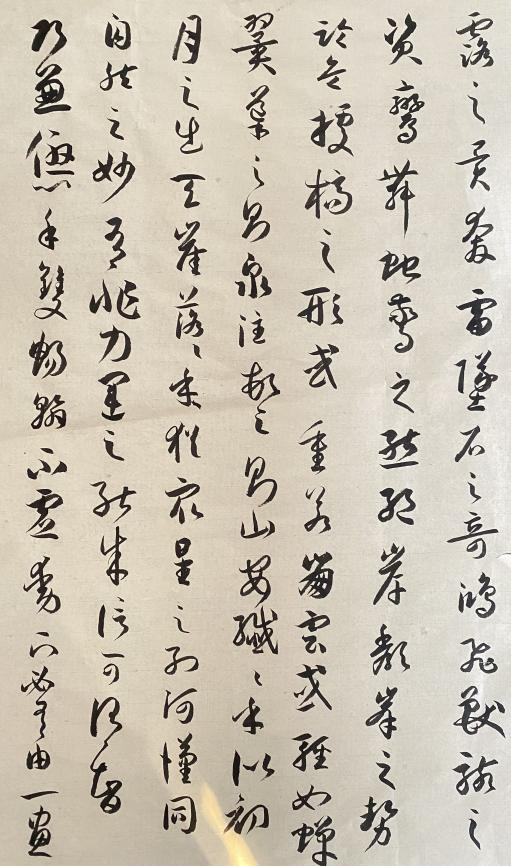 露之異奔雷墜石之奇鴻飛獸駭之
資鸞舞蛇驚之態絕岸頹峯之勢
臨危據槁之形或重若崩雲或輕如蟬
翼導之則泉注頓之則山安纖〻乎似初
月之出天崖落〻乎猶眾星之列河漢同
自然之妙有非力運之能成信可謂智
巧兼優心手雙暢翰不虛動下必有由一畫